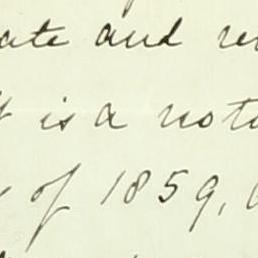 ate and re
is a note
of 1859,